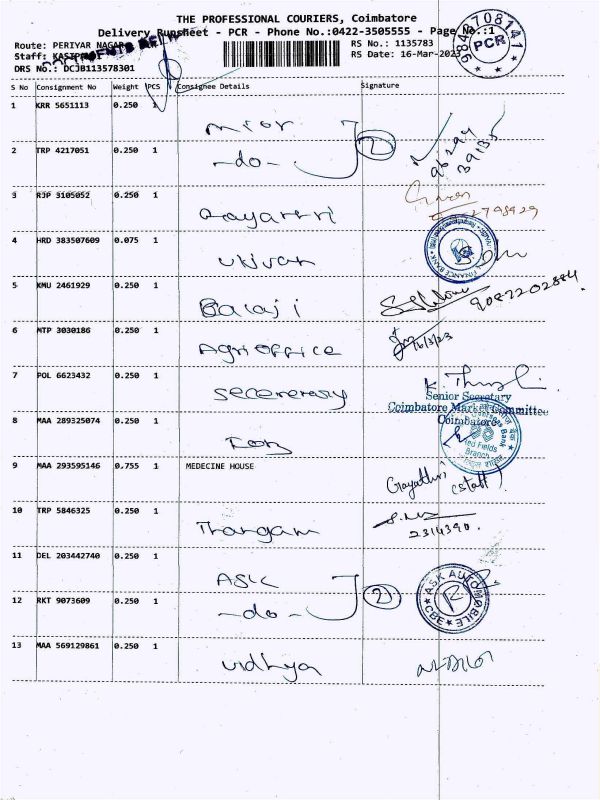 THE PROFESSIONAL COURIERS, Coimbatore
Delivery Runsheet - PCR - Phone No.:0422-3505555 - Page No.:1
Route: PERIYAR NAGAR
RS No.: 1135783
Staff:
RS Date: 16-Mar-2023
DRS No.: DCJB113578301
PCR
S No Consignment No Weight PCS Consignee Details Signature
1 KRR 5651113 0.250 1
2 TRP 4217051 0.250 1 -do- 2
3 RJP 9105052 0.250 1 Gayathri
2798929
4 HRD 383507609 0.075 1 Ujivan
5 KMU 2461929 0.250 1 Balaji 9087202884
6 MTP 3030186 0.250 1 Agri office 16/3/23
7 POL 6623432 0.250 1
Senior Secretary
Coimbatore Market Committee
Coimbatore
8 MAA 289325074 0.250 1
Red Fields
Branch
9 MAA 293595146 0.755 1 MEDECINE HOUSE Gayathri (staff)
10 TRP 5846325 0.250 1 Thangam
2314390.
11 DEL 203442740 0.250 1 ASK
12 RKT 9073609 0.250 1 -do- 2
ASK AUTOMOBILE CBE
13 MAA 569129861 0.250 1 Vidhya